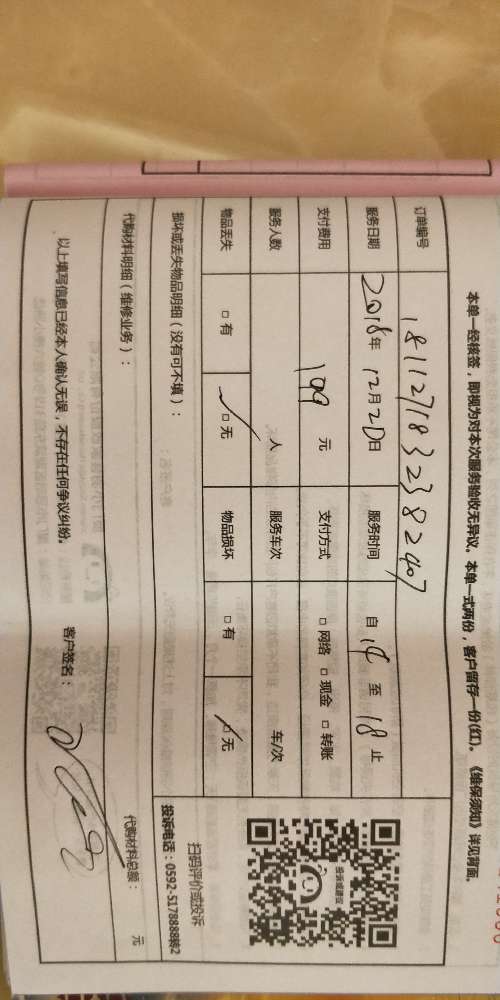 本单一经核签，即视为对本次服务验收无异议。本单一式两份，客户留存一份(红)。《维保须知》详见背面。
订单编号 1811271832382407
服务日期 2018年 12月20日 服务时间 自 14 至 18 止
支付费用 199 元 支付方式 □ 网络 □ 现金 □ 转账
服务人数 人 服务车次 车/次
物品丢失 □ 有 □ 无 物品损坏 □ 有 □ 无
损坏或丢失物品明细（没有可不填）：
投诉或建议
扫码评价或投诉
投诉电话：0592-5178888转2
代购材料明细（维修业务）：
代购材料总额： 元
以上填写信息已经本人确认无误，不存在任何争议纠纷。 客户签名：